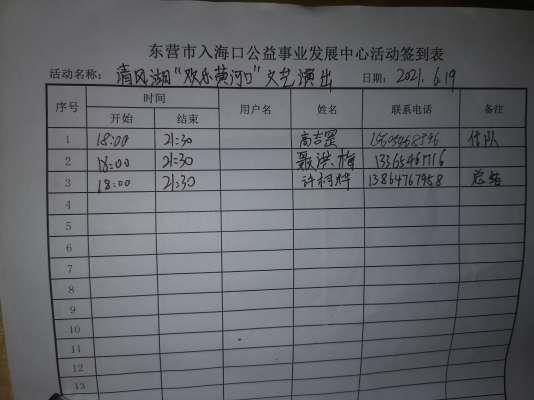 东营市入海口公益事业发展中心活动签到表
活动名称： 清风湖“欢乐黄河口”文艺演出 日期： 2021.6.19
序号 时间 用户名 姓名 联系电话 备注
开始 结束
1 18:00 21:30 高吉罡 带队
2 18:00 21:30 聂洪梅
3 18:00 21:30 许柯烨 13864767958 总结
4
5
6
7
8
9
10
11
12
13